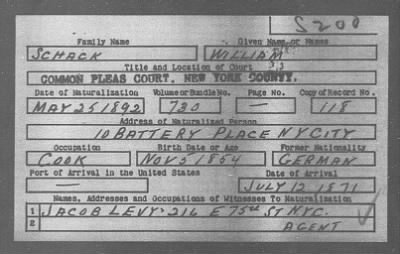 S200
Family Name Given Name or Names
SCHACK WILLIAM
Title and Location of Court
COMMON PLEAS COURT. NEW YORK COUNTY.
Date of Naturalization Volume or Bundle No. Page No. Copy of Record No.
MAY 25 1892 730 — 118
Address of Naturalized Person
10 BATTERY PLACE NY CITY
Occupation Birth Date or Age Former Nationality
COOK NOV 5 1854 GERMAN
Port of Arrival in the United States Date of Arrival
— JULY 12 1871
Names, Addresses and Occupations of Witnesses To Naturalization
1 JACOB LEVY- 216 E 75th ST NYC.
2 AGENT